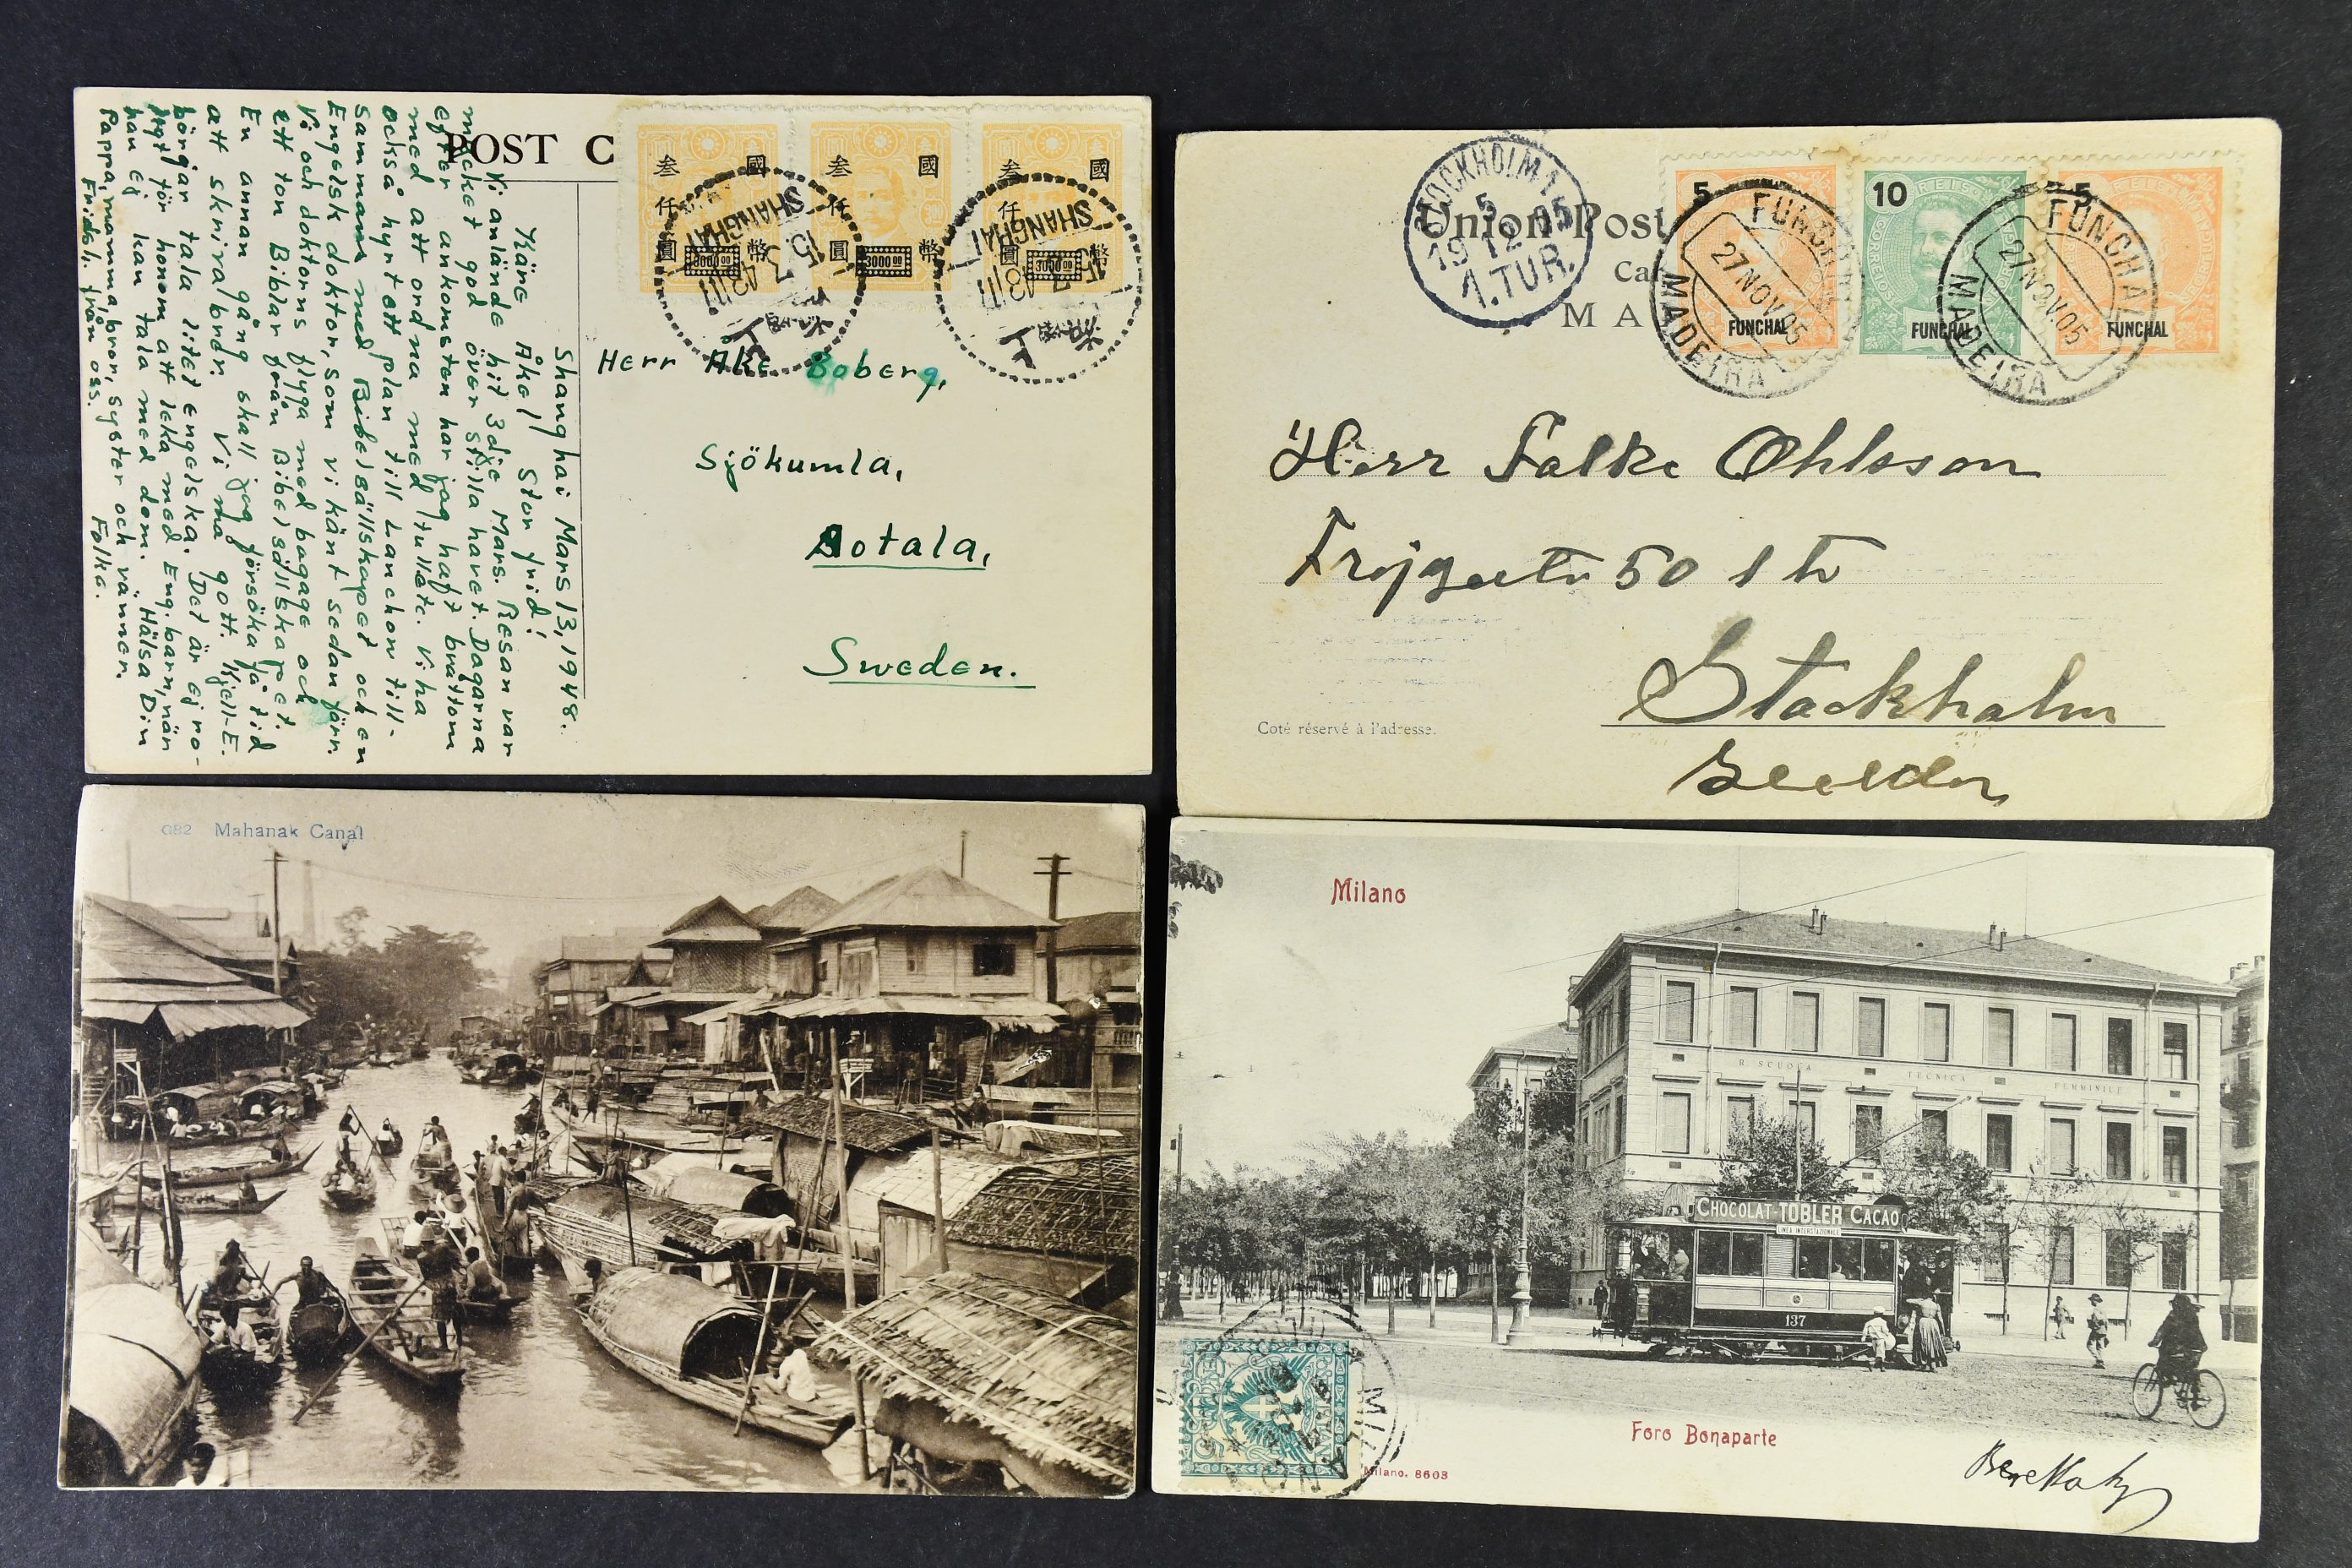 POST C
Shanghai Mars 13, 1948.
Käre Åke! Stor frid!
Vi anlände hit 3dje Mars. Resan var
mycket god över stilla havet. Dagarna
efter ankomsten har jag haft bråttom
med att ordna med tullen. Vi ha
också hyrt ett plan till Lanchow till-
sammans med Bibelsällskapet och en
Engelsk doktor, som vi känt sedan förr.
Vi och doktorns flyga med bagage och
ett ton Biblar från Bibelsällskapet.
En annan gång skall jag försöka få tid
att skriva brev. Vi må gott. Kjell-E.
börjar tala litet engelska. Det är ej ro-
ligt för honom att leka med Eng. barn, när
han ej kan tala med dom. Hälsa Din
Pappa, mamma, bror, syster och vännen.
Fridsh. från oss. Folke.
國幣 叁仟圓 3000 00
國幣 叁仟圓 3000 00
國幣 叁仟圓 3000 00
SHANGHAI
15.3.48
上海
SHANGHAI
15.3.48
上海
Herr Åke Boberg,
Sjökumla,
Motala,
Sweden.
STOCKHOLM 1
5
19 12 05
1. TUR.
Union Post
Ca
MA
5
FUNCHAL
10
REIS
CORREIOS
FUNCHAL
5
FUNCHAL
FUNCHAL
27 NOV. 05
MADEIRA
FUNCHAL
27 NOV. 05
MADEIRA
Herr Falke Ohlsson
Frejgatn 50 1 tr
Stockholm
Coté réservé à l'adresse.
082 Mahanak Canal
Milano
R. SCUOLA TECNICA FEMMINILE
CHOCOLAT-TOBLER CACAO
LINEA INTERSTAZIONALE
137
MILANO
Foro Bonaparte
Milano. 8603